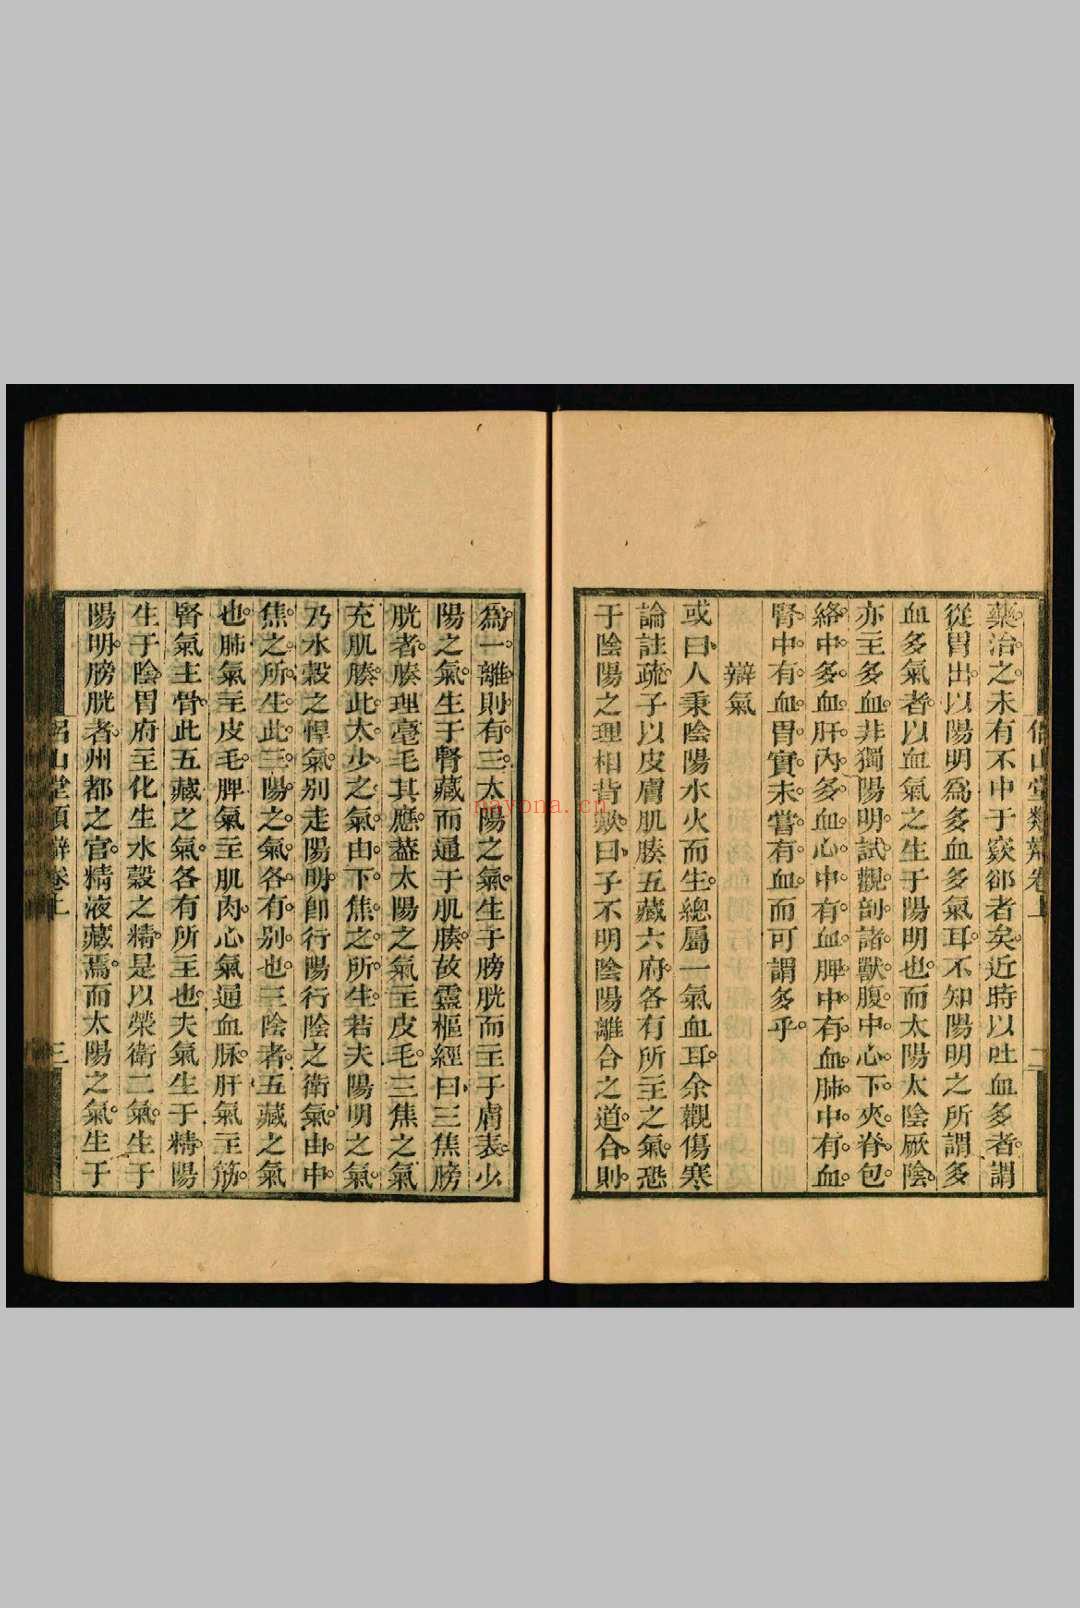 侶山堂類辯卷上 二
藥治之未有不中于窾郤者矣近時以吐血多者謂
從胃出以陽明爲多血多氣耳不知陽明之所謂多
血多氣者以血氣之生于陽明也而太陽太陰厥陰
亦主多血非獨陽明試觀剖諸獸腹中心下夾脊包
絡中多血肝內多血心中有血脾中有血肺中有血
腎中有血胃實未嘗有血而可謂多乎
辯氣
或曰人秉陰陽水火而生總屬一氣血耳余觀傷寒
論註疏子以皮膚肌腠五藏六府各有所主之氣恐
于陰陽之理相背歟曰子不明陰陽離合之道合則
爲一離則有三太陽之氣生于膀胱而主于膚表少
陽之氣生于腎藏而通于肌腠故靈樞經曰三焦膀
胱者腠理毫毛其應葢太陽之氣主皮毛三焦之氣
充肌腠此太少之氣由下焦之所生若夫陽明之氣
乃水穀之悍氣别走陽明卽行陽行陰之衛氣由中
焦之所生此三陽之氣各有别也三陰者五藏之氣
也肺氣主皮毛脾氣主肌肉心氣通血脉肝氣主筋
腎氣主骨此五藏之氣各有所主也夫氣生于精陽
生于陰胃府主化生水穀之精是以榮衛二氣生于
陽明膀胱者州都之官精液藏焉而太陽之氣生于
侶山堂類辯卷上 三
nayona.cn